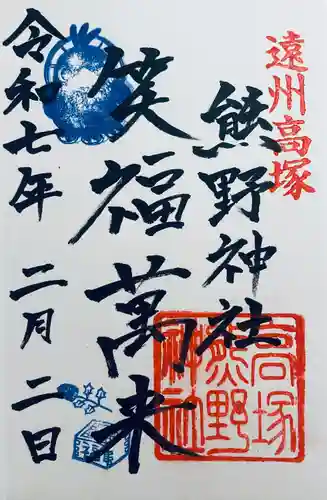 遠州高塚
熊野神社
笑福萬来
令和七年 二月 二日
高塚
熊野
神社